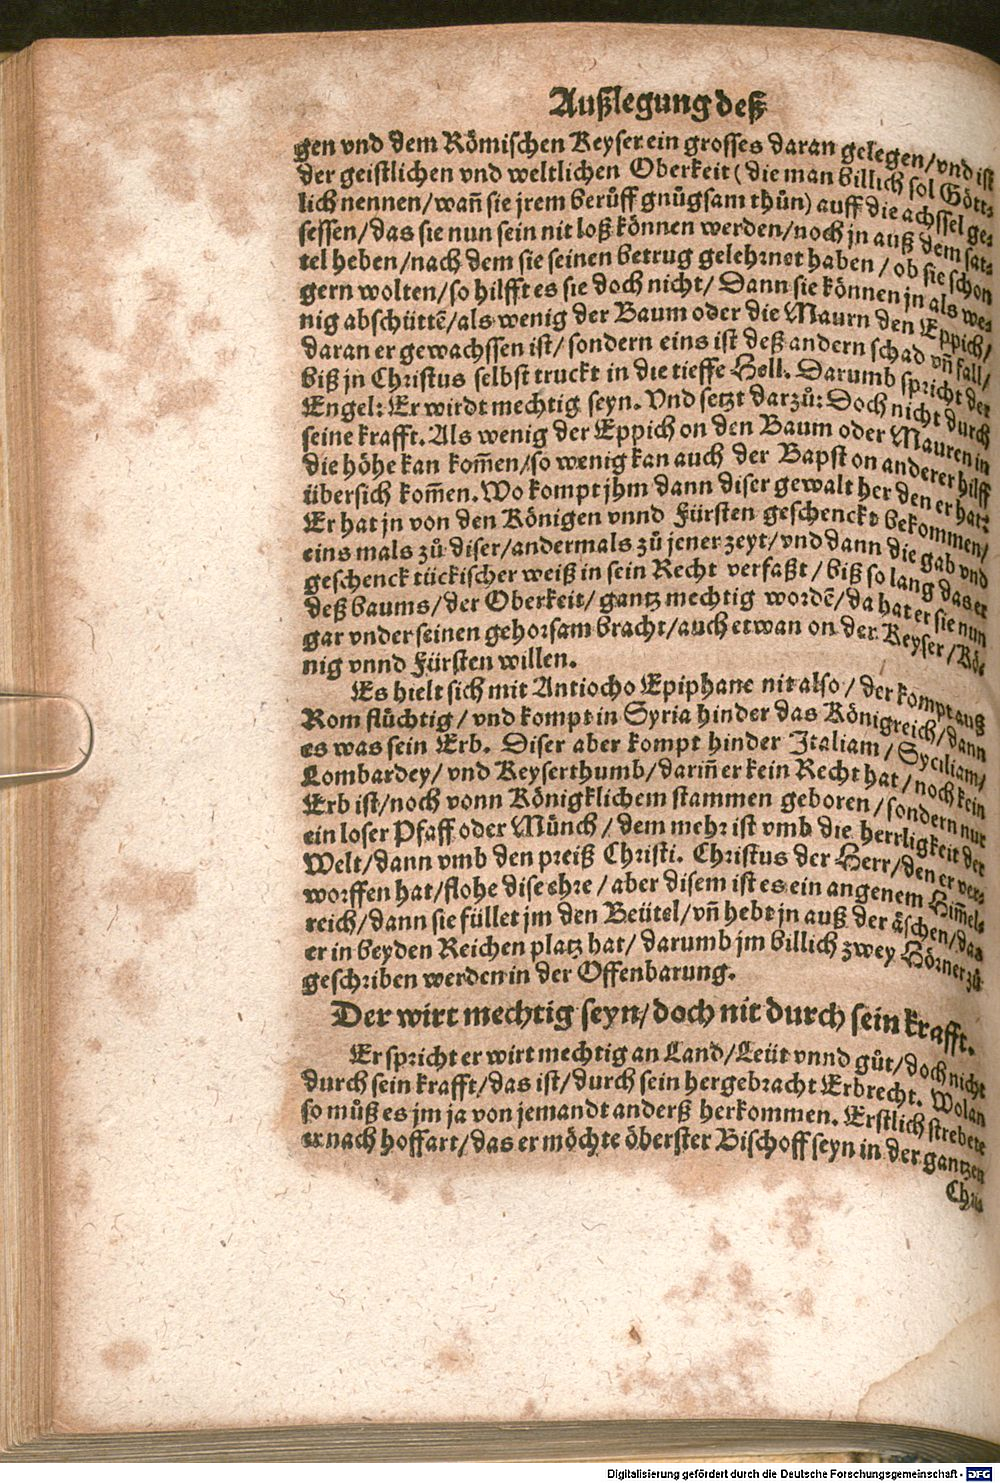 Außlegung deß
gen vnd dem Römischen Keyser ein grosses daran gelegen/vnd ist
der geistlichen vnd weltlichen Oberkeit (die man billich sol Gött⸗
lich nennen/wañ sie jrem berůff gnůgsam thůn) auff die achssel ge⸗
sessen/das sie nun sein nit loß können werden/noch jn auß dem sat⸗
tel heben/nach dem sie seinen betrug gelehrnet haben/ob sie schon
gern wolten/so hilfft es sie doch nicht/Dann sie können jn als we⸗
nig abschüttẽ/als wenig der Baum oder die Maurn den Eppich/
daran er gewachssen ist/sondern eins ist deß andern schad vñ fall/
biß jn Christus selbst truckt in die tieffe Hell. Darumb spricht der
Engel: Er wirdt mechtig seyn. Vnd setzt darzů: Doch nicht durch
seine krafft. Als wenig der Eppich on den Baum oder Mauren in
die höhe kan kom̃en/so wenig kan auch der Bapst on anderer hilff
übersich kom̃en. Wo kompt jhm dann diser gewalt her den er hat:
Er hat jn von den Königen vnnd Fürsten geschenckt bekommen/
eins mals zů diser/andermals zů jener zeyt/vnd dann die gab vnd
geschenck tückischer weiß in sein Recht verfaßt/biß so lang das er
deß baums/der Oberkeit/gantz mechtig wordẽ/da hat er sie nun
gar vnder seinen gehorsam bracht/auch etwan on der Keyser/Kö⸗
nig vnnd Fürsten willen.
Es hielt sich mit Antiocho Epiphane nit also/der kompt auß
Rom flüchtig/vnd kompt in Syria hinder das Königreich/dann
es was sein Erb. Diser aber kompt hinder Italiam/Syciliam/
Lombardey/vnd Keyserthumb/darin̄ er kein Recht hat/noch kein
Erb ist/noch vonn Königklichem stammen geboren/sondern nur
ein loser Pfaff oder Münch/dem mehr ist vmb die herrligkeit der
Welt/dann vmb den preiß Christi. Christus der Herr/den er ver⸗
worffen hat/flohe dise ehre/aber disem ist es ein angenem Him̃el⸗
reich/dann sie füllet jm den Beütel/vñ hebt jn auß der äschen/das
er in beyden Reichen platz hat/darumb jm billich zwey Hörner zů
geschriben werden in der Offenbarung.
Der wirt mechtig seyn/doch nit durch sein krafft.
Er spricht er wirt mechtig an Land/Leüt vnnd gůt/doch nicht
durch sein krafft/das ist/durch sein hergebracht Erbrecht. Wolan
so můß es jm ja von jemandt anderß herkommen. Erstlich strebete
er nach hoffart/das er möchte öberster Bischoff seyn in der gantzen
Chri⸗
Digitalisierung gefördert durch die Deutsche Forschungsgemeinschaft - DFG